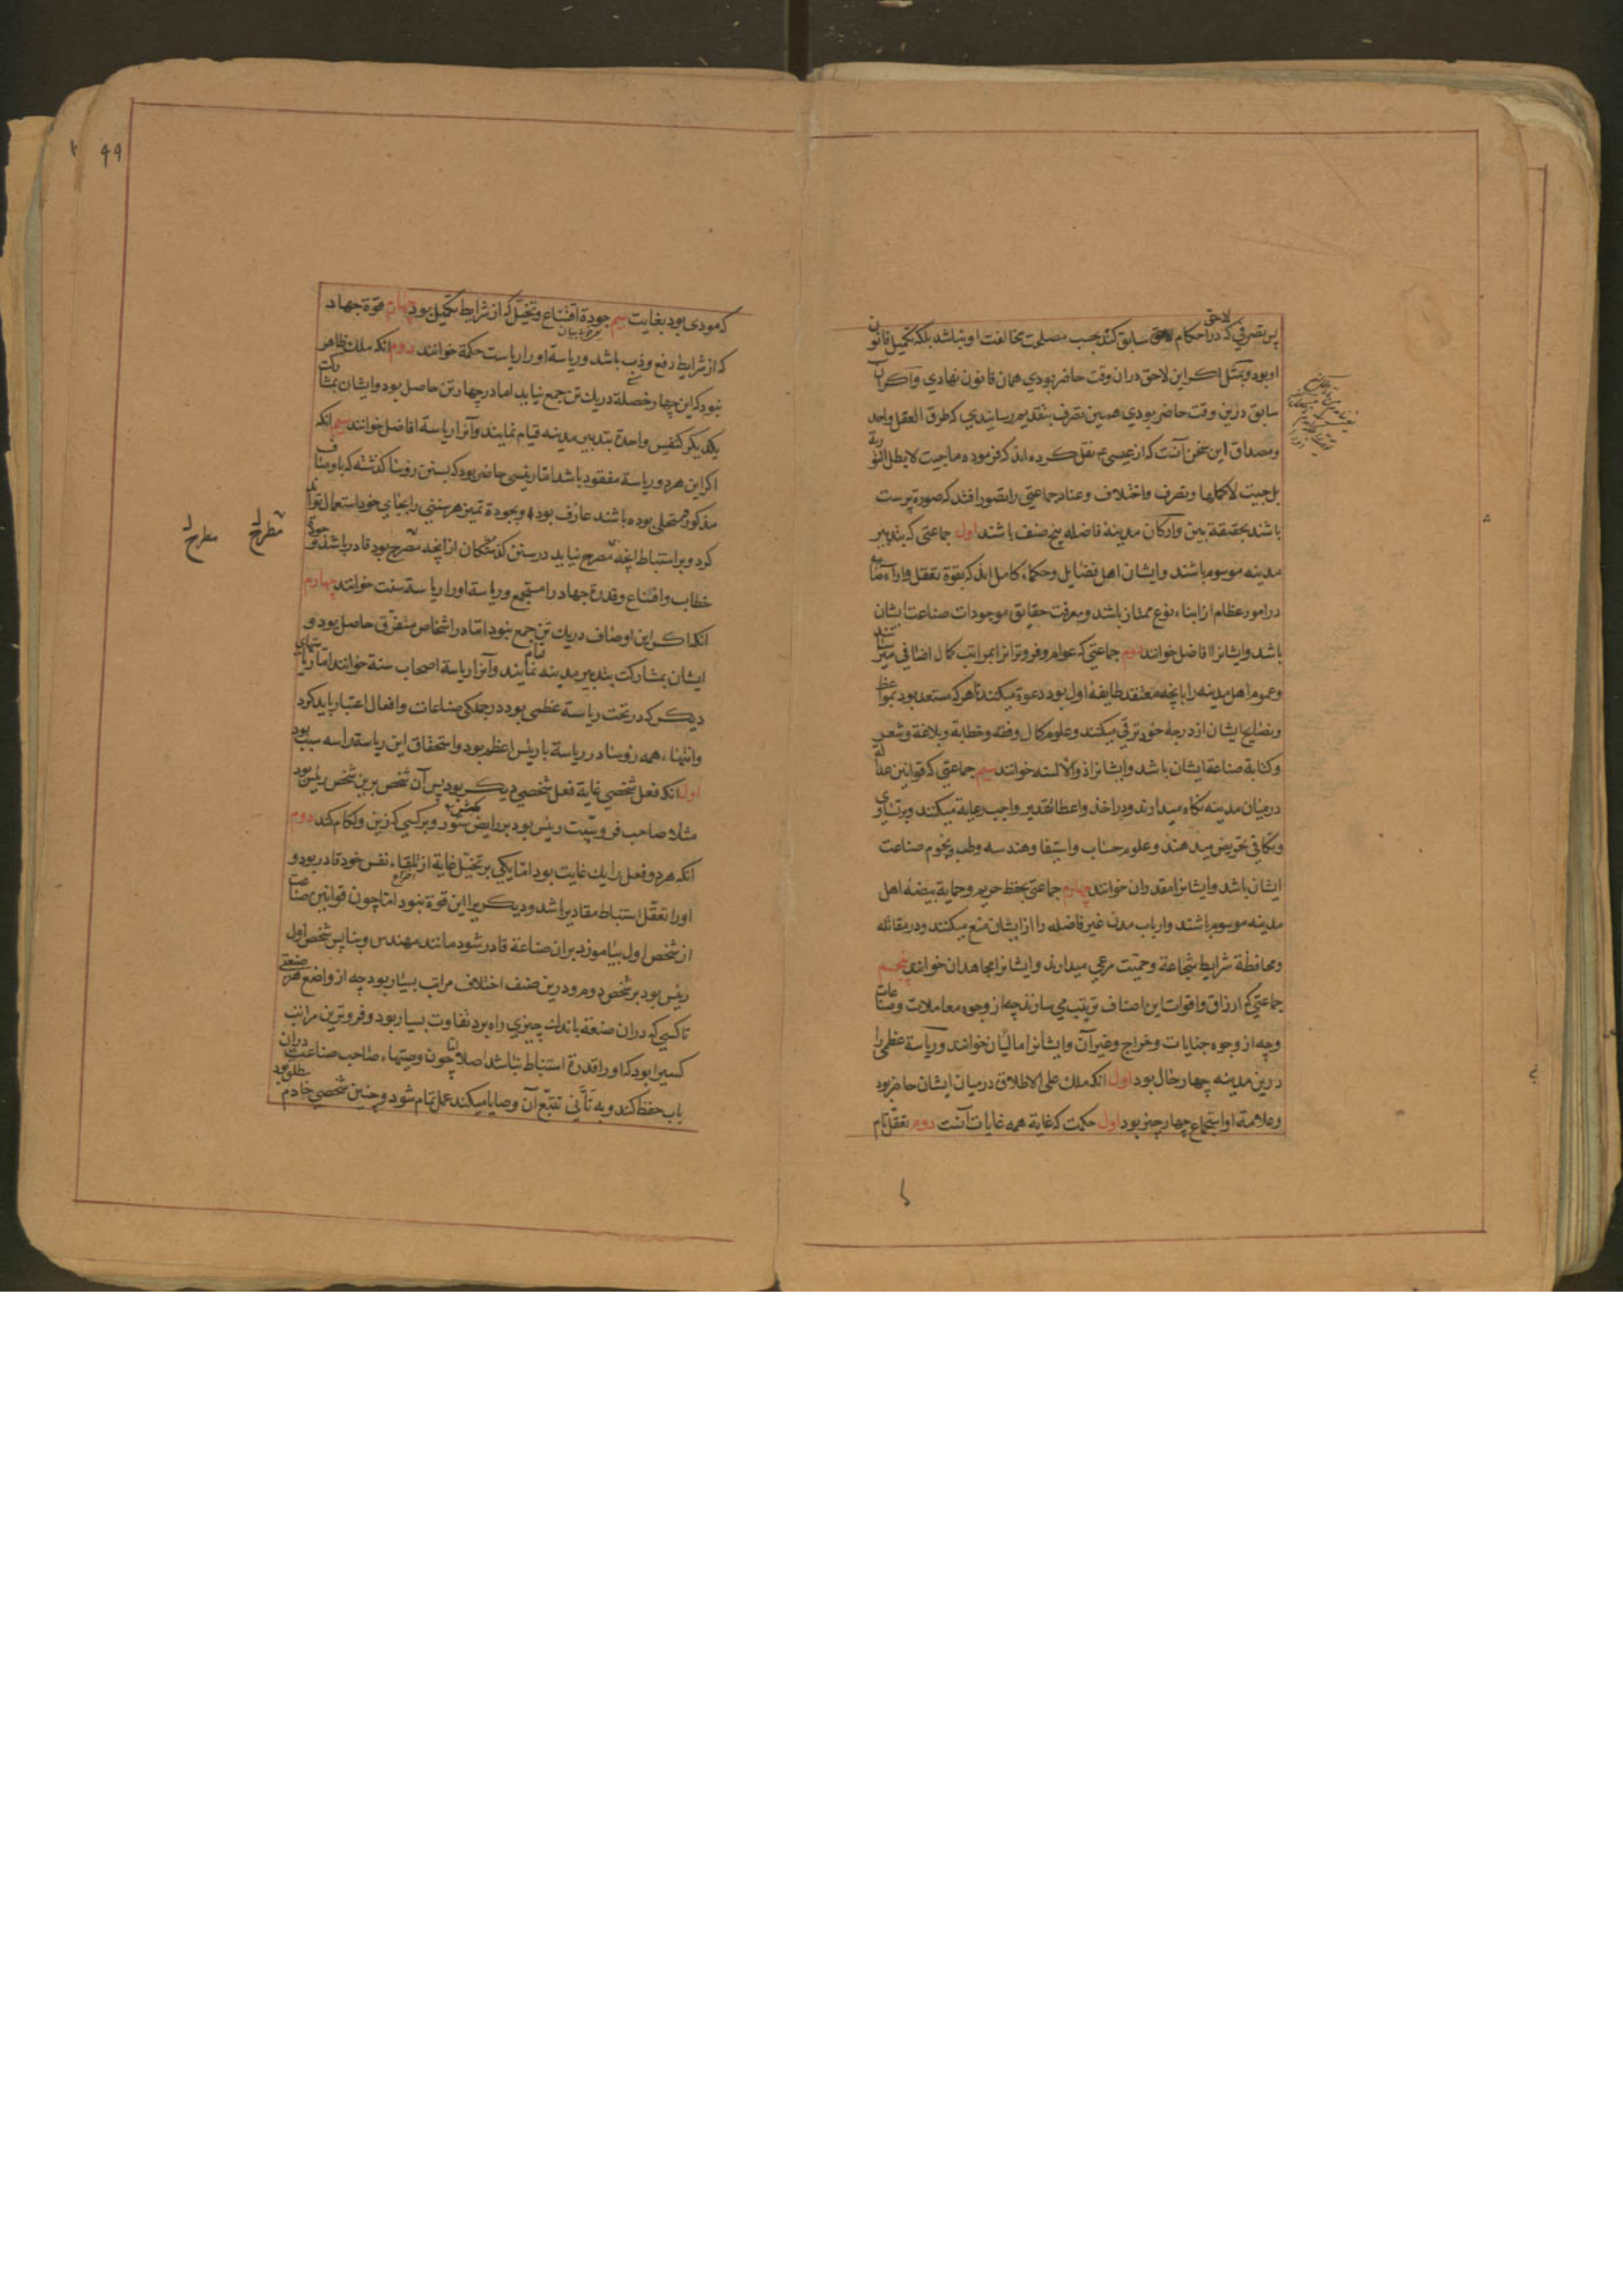 پس تصرفی که در احکام لاحق سابق کند بحسب مصلحت مخالفت او نباشد بلکه تکمیل قانون
او بود و بمثل اکر این لاحق دران وقت حاضر بودی همان قانون نهادی و اکر آن
سابق درین وقت حاضر بودی همین تصرف بتقدیم رسانیدی که طرق العقل واحد
ومصداق این سخن آنست که از عیسی ع نقل کرده اند که فرموده ما جیت لابطل التوریة
بل جیت لاکملها وتصرف واختلاف وعناد جماعتی را تصور افتد که صورة پرست
باشند نه حقیقة بین وارکان مدینهٔ فاضله پنج صنف باشند اول جماعتی که بتدبیر
مدینه موسوم باشند وایشان اهل فضایل وحکماء کامل اند که بقوة تعقل واراء صایبه
در امور عظام از ابناء نوع ممتاز باشند ومعرفت حقایق موجودات صناعت ایشان
باشد وایشانرا افاضل خوانند دوم جماعتی که عوام وفروترانرا بمراتب کمال اضافی میرسانند
وعموم اهل مدینه را بانچه معتقد طایفهٔ اول بود دعوة میکنند تا هر که مستعد بود بمواعظ
ونصایح ایشان از درجهٔ خود ترقی میکنند وعلوم کمال وفقه وخطابة وبلاغة وشعر
وکتابة صناعة ایشان باشد وایشانرا ذو الالسنه خوانند سیم جماعتی که قوانین عدالة
درمیان مدینه نکاه میدارند ودر اخذ واعطا تقدیر واجب رعایة میکنند وبر تساوی
وتکافی تحریض میدهند وعلوم حساب واستیفا وهندسه وطب ونجوم صناعت
ایشان باشد وایشانرا مقدران خوانند چهارم جماعتی بحفظ حریم وحمایة بیضهٔ اهل
مدینه موسوم باشند وارباب مدن غیر فاضله را از ایشان منع میکنند ودر مقاتله
ومحافظة شرایط شجاعة وحمیت مرعی میدارند وایشانرا مجاهدان خوانند پنجم
جماعتی که ارزاق واقوات این اصناف ترتیب می سازند چه از وجوه معاملات وصناعات
وچه از وجوه جنایات وخراج وغیر آن وایشانرا مالیان خوانند وریاسة عظمی را
درین مدینه چهار حال بود اول انکه ملک علی الاطلاق درمیان ایشان حاضر بود
وعلامة او استجماع چهار چیز بود اول حکمت که غایة همه غایات آنست دوم تعقل تام
۹۹
که مودی بود بغایت سیم جودة اقناع وتخیل که از شرایط تکمیل بود چهارم قوة جهاد
که از شرایط دفع وذب باشد وریاسة اورا ریاست حکمة خوانند دوم انکه ملک ظاهر
نبود که این چهار خصلة در یک تن جمع نیاید اما در چهار تن حاصل بود وایشان بمشارکت
یکدیکر کنفس واحدة بتدبیر مدینه قیام نمایند وآنرا ریاسة افاضل خوانند سیم انکه
اکر این هر دو ریاسة مفقود باشد اما رئیسی حاضر بود که بسنن رؤسا کذشته که باوصاف
مذکور متحلی بوده باشند عارف بود وبجودة تمییز هر سنتی را بجای خود استعمال تواند
کرد وبر استنباط انچه مصرح نیابد در سنن کذشتکان از انچه مصرح بود قادر باشد وجودة
خطاب واقناع وقدرة جهاد را مستجمع وریاسة اورا ریاسة سنت خوانند چهارم
انکه اکر این اوصاف در یک تن جمع نبود اما در اشخاص متفرق حاصل بود و
ایشان بمشارکت بتدبیر مدینه قیام نمایند وآنرا ریاسة اصحاب سنة خوانند اما ریاستهای
دیکر که در تحت ریاسة عظمی بود در جملکی صناعات وافعال اعتبار باید کرد
وانتهاء همه رؤسا در ریاسة با رئیس اعظم بود واستحقاق این ریاسة را سه سبب بود
اول انکه فعل شخصی غایة فعل شخصی دیکر بود پس آن شخص برین شخص رئیس بود
مثلا صاحب فروسیت رئیس بود بر رایض ستور وبر کسی که زین ولکام کند دوم
انکه هر دو فعل را یک غایت بود اما یکی بر تخیل غایة از تلقاء نفس خود قادر بود و
اورا تعقل استنباط مقادیر باشد ودیکریرا این قوة نبود اما چون قوانین صناعت
از شخص اول بیاموزد بران صناعة قادر شود مانند مهندس وبنا پس شخص اول
رئیس بود بر شخص دوم ودرین صنف اختلاف مراتب بسیار بود چه از واضع هر صنعتی
تا کسی که دران صنعة باندک چیزی راه برد تفاوت بسیار بود وفروترین مراتب
کسیرا بود که اورا قدرة استنباط نباشد اصلا اما چون وصیتهاء صاحب صناعت دران
باب حفظ کند وبه تأنی تتبع آن وصایا میکند عمل تمام شود وچنین شخصی خادم مطلق بود